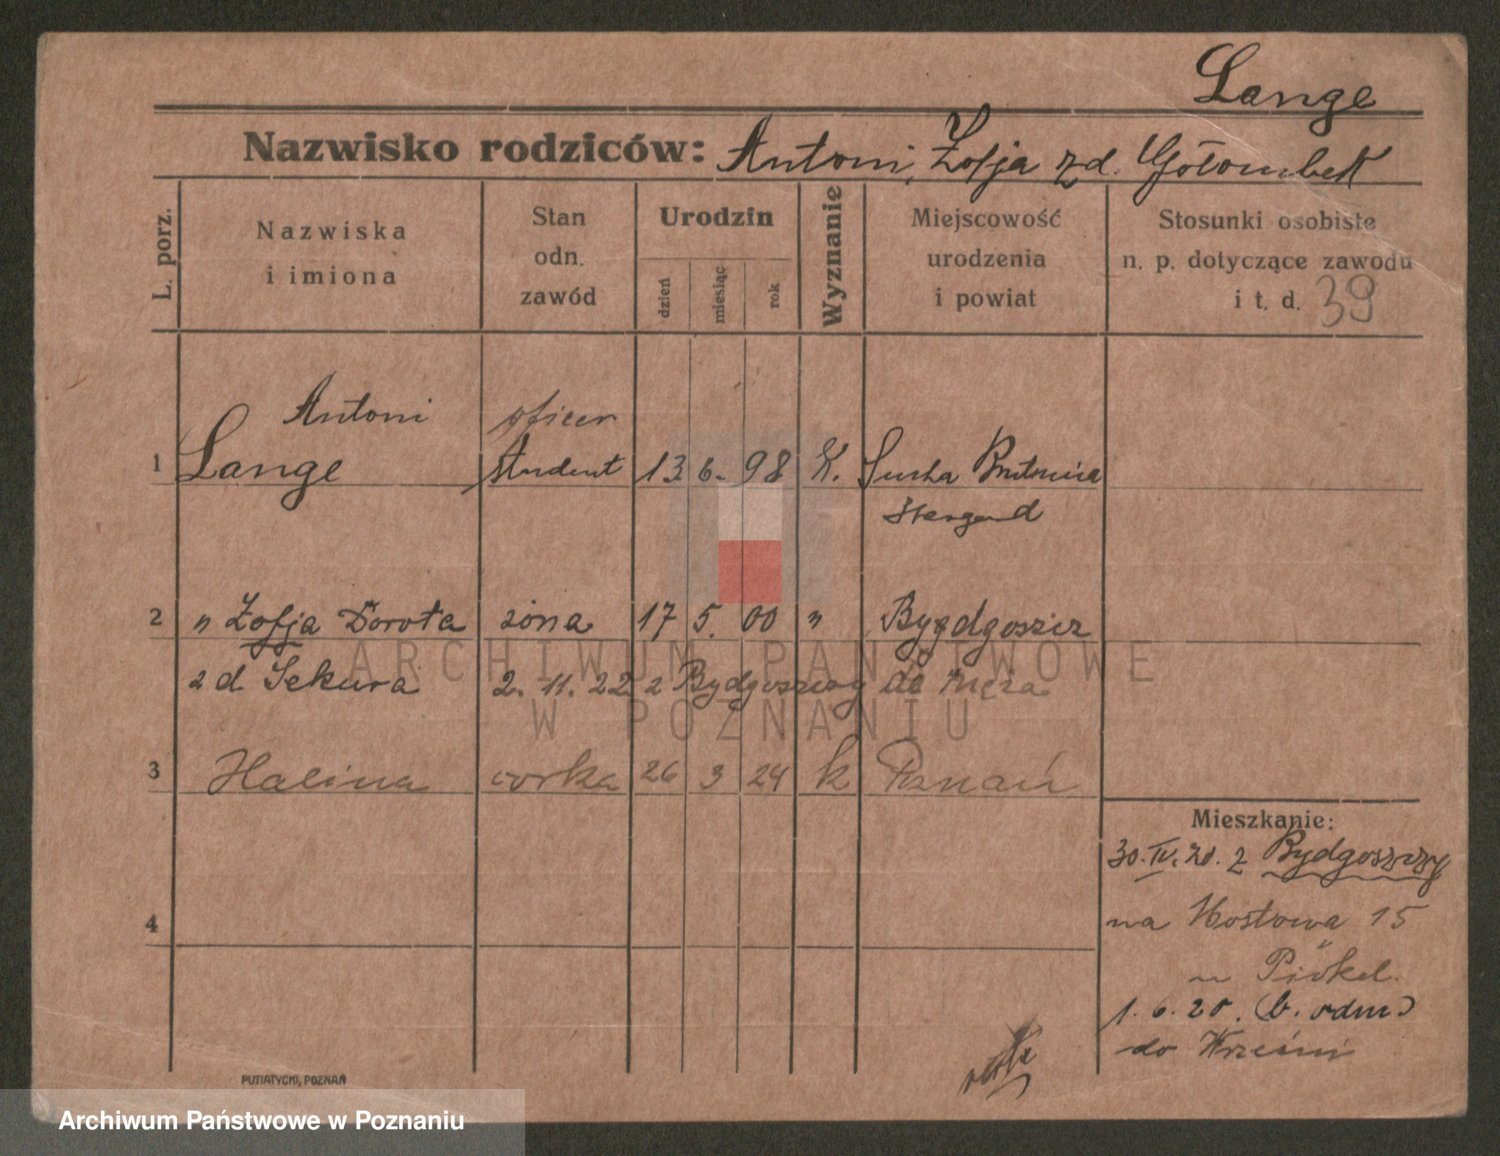 Lange
Nazwisko rodziców: Antoni, Zofja zd. Gołombek
L. porz.
Nazwiska
i imiona
Stan
odn.
zawód
Urodzin
dzień
miesiąc
rok
Wyznanie
Miejscowość
urodzenia
i powiat
Stosunki osobiste
n. p. dotyczące zawodu
i t. d. 39
Antoni oficer
1 Lange student 13 6. 98 K. Sucha
2 " Zofja Dorota żona 17 5. 00 " Bygdgoszcz
z d. Sekura 2. 11. 22 z Bydgoszczy do męża
3 Halina corka 26 3 24 k Poznań
Mieszkanie:
30. IV. 20. z Bydgoszczy
na 15
1. 6. 20. (b. odm)
do Wrześni
4
PUTIATYCKI, POZNAŃ
ARCHIWUM PAŃSTWOWE
W POZNANIU
Archiwum Państwowe w Poznaniu